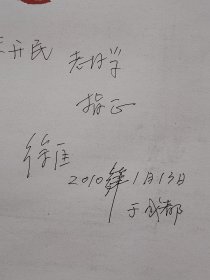 开民
老同学
指正
徐匡
2010年1月13日
于成都